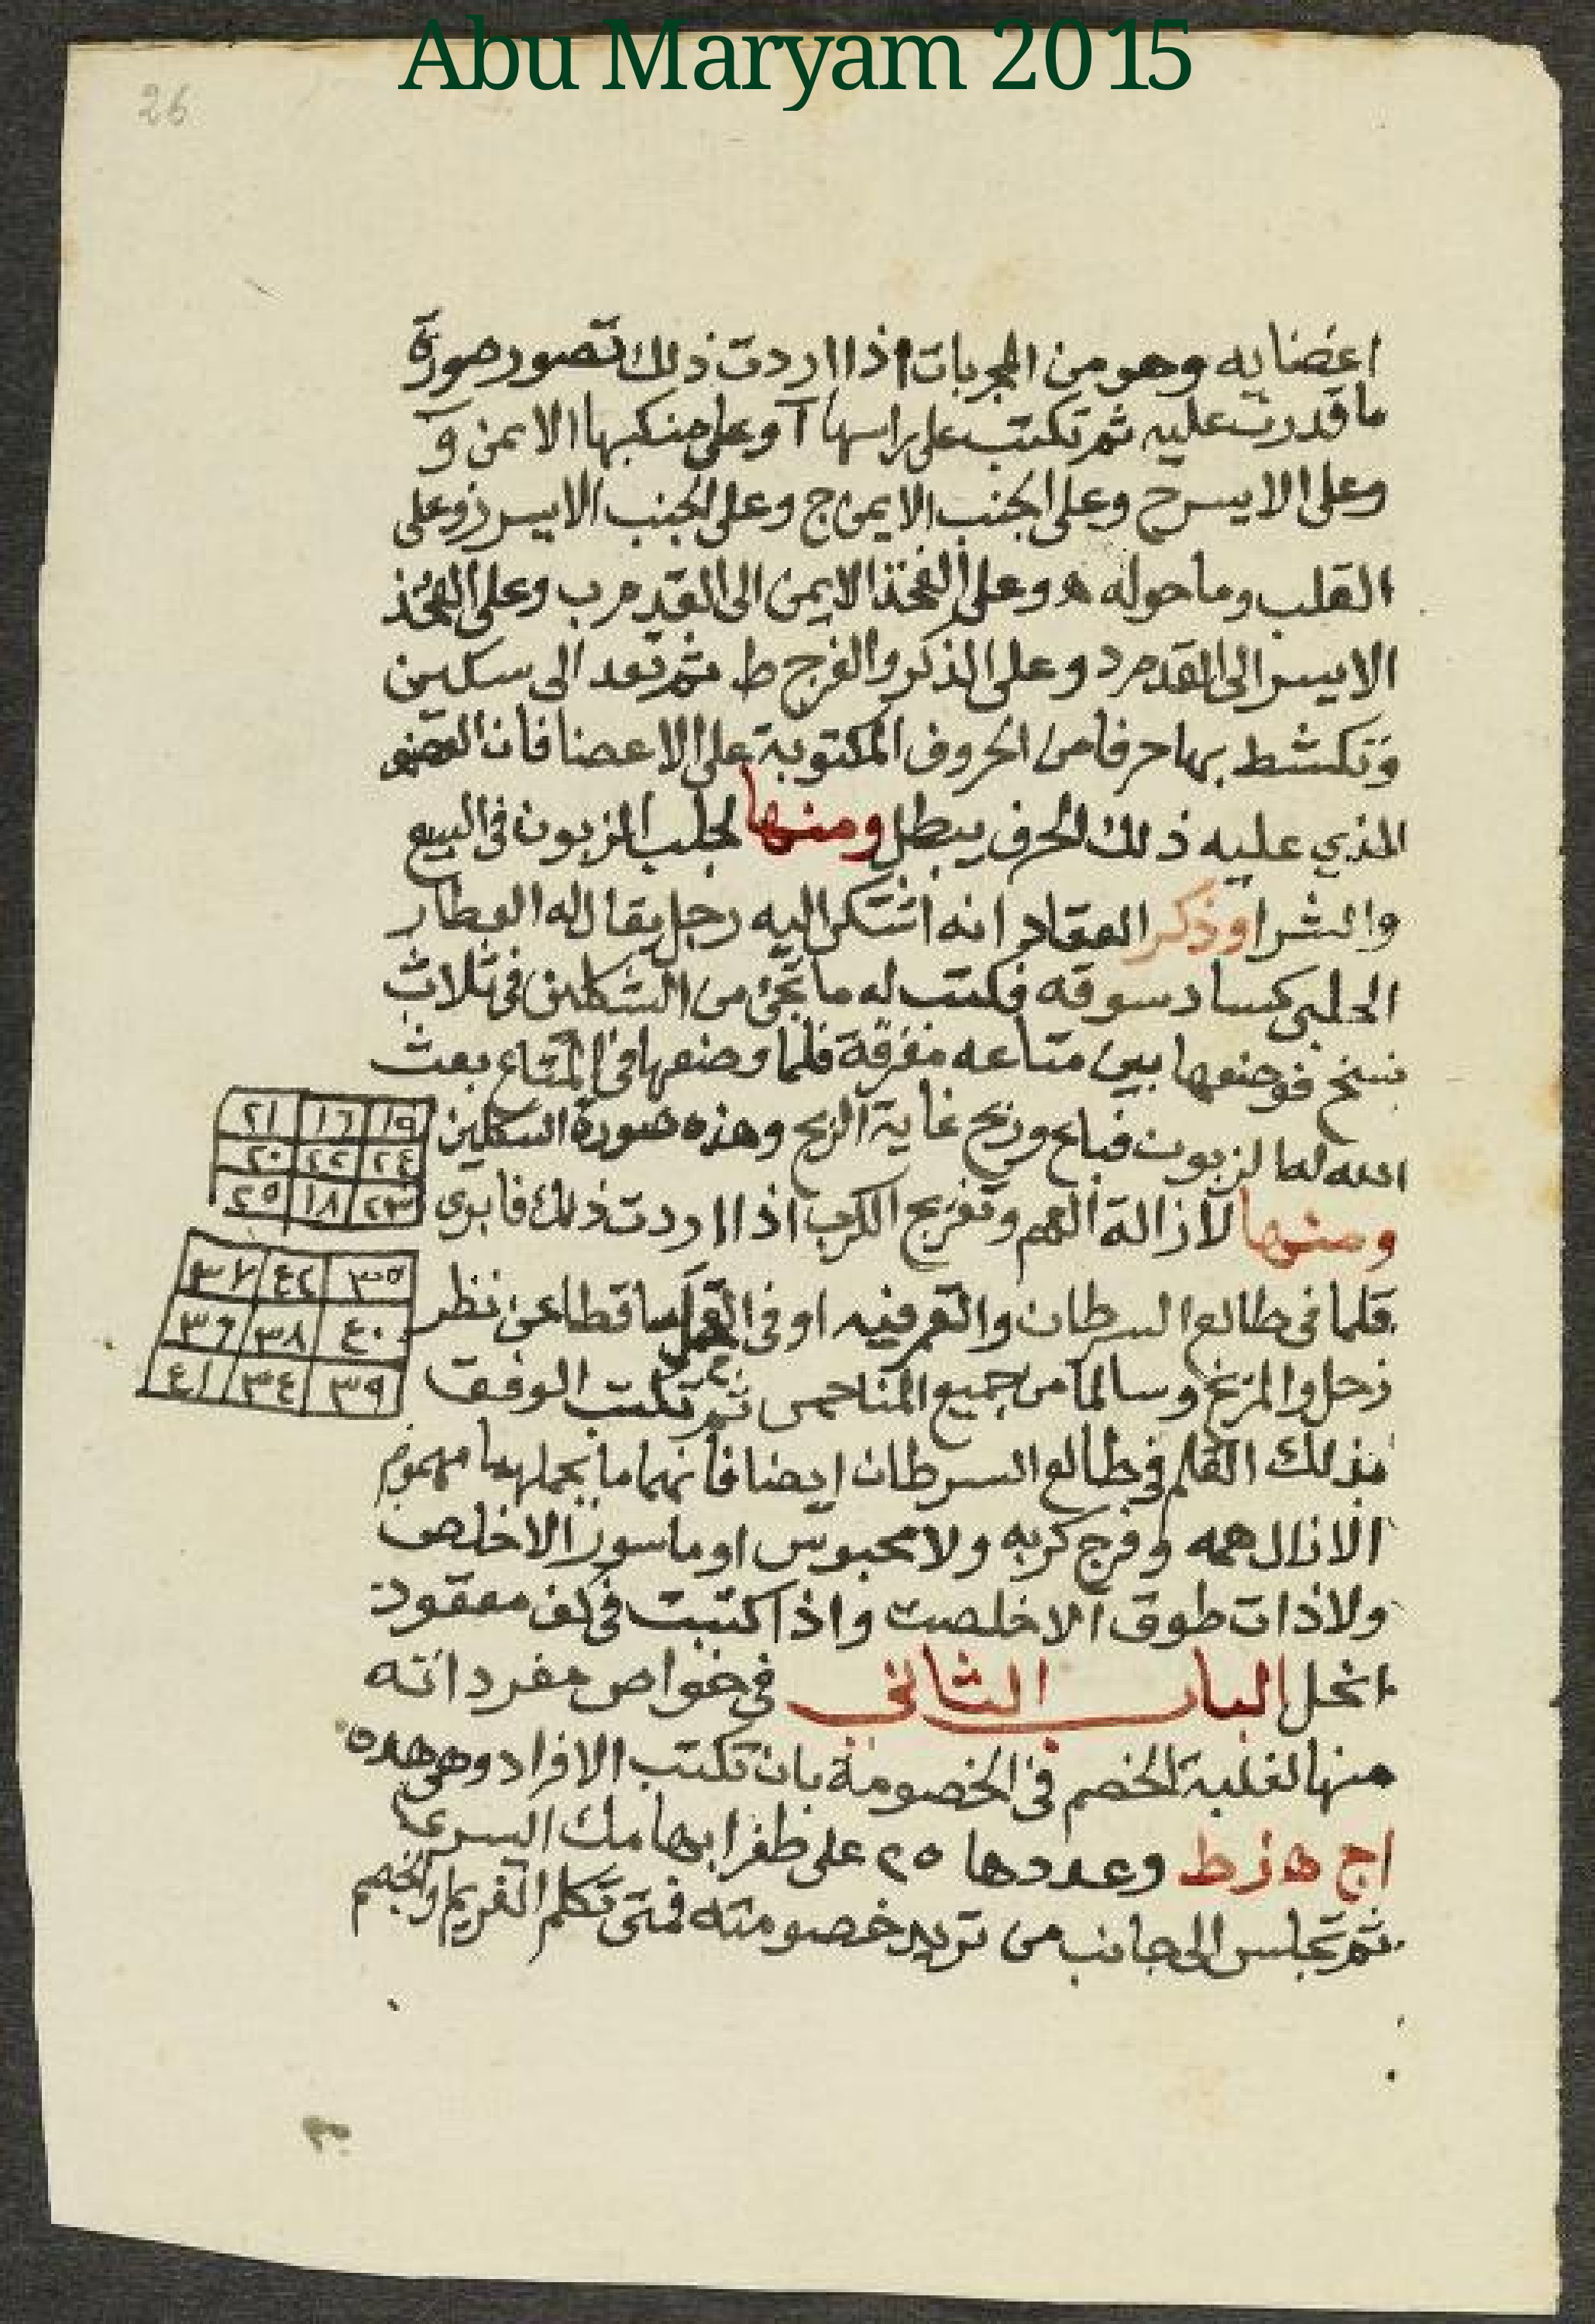 Abu Maryam 2015
26
اعضايه وهو من المجربات اذا اردت ذلك تصور صورة
ما قدرت عليه ثم تكتب على راسها آ وعلى منكبها الايمن و
وعلى الايسر ح وعلى الجنب الايمن ج وعلى الجنب الايسر ز وعلى
القلب وما حوله ه وعلى الفخذ الايمن الى القدم ب وعلى الفخذ
الايسر الى القدم د وعلى الذكر والفرج ط ثم تعد الى سكين
وتكشط بها حرفا من الحروف المكتوبة على الاعضا فان العضو
الذي عليه ذلك الحرف يبطل ومنها لجلب الزبون في البيع
والشرا وذكر العقاد انه اشتكى اليه رجل يقال له العطار
الحلبي كساد سوقه فكتب له ما تجئ من الشكلين في ثلاث
نسخ فوضعها بين متاعه مفرقة فلما وضعها في المتاع بعث
الله له الزبون فباع وربح غاية الربح وهذه صورة الشكلين
٢١ ١٦ ١٩
٢٠ ٢٢ ٢٤
٢٥ ١٨ ٢٣
ومنها لازالة الهم وتفريج الكرب اذا اردت ذلك فابرى
٣٧ ٤٢ ٣٥
٣٦ ٣٨ ٤٠
٤١ ٣٤ ٣٩
قلما في طالع السرطان والقمر فيه او في الحمل ساقطا عن نظر
زحل والمريخ وسالما من جميع المناحس ثم تكتب الوفق
بذلك القلم في طالع السرطان ايضا فانهما ما يحملهما مهموم
الا زال همه وفرج كربه ولا محبوس او ماسور الا خلص
ولا ذات طوق الا خلصت واذا كتبت في كف معقود
انحل الباب الثاني في خواص مفرداته
منها لغلبة الخصم في الخصومة بان تكتب الافراد وهى هذه
اج ه زط وعددها ٢٥ على ظفر ابهامك اليسرى
ثم تجلس الى جانب من تريد خصومته فمتى تكلم الغريم والخصم